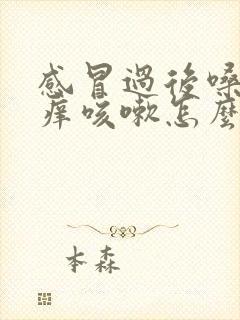 感冒過後嗓
痒咳嗽怎麼
本森